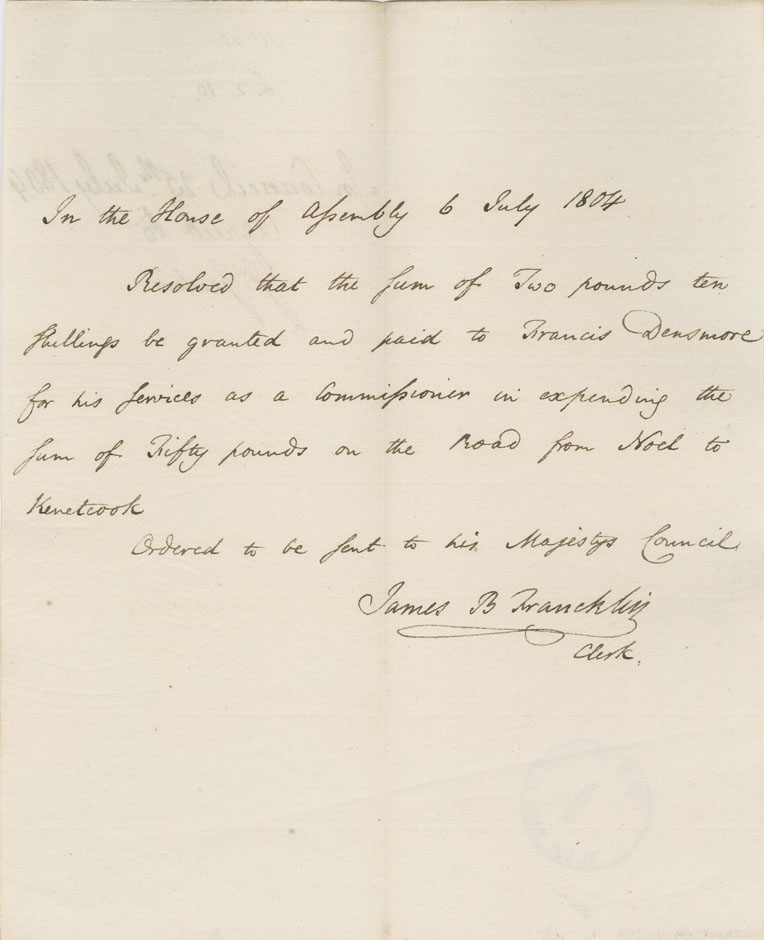 In the House of Assembly 6 July 1804
Resolved that the sum of Two pounds ten
shillings be granted and paid to Francis Densmore
for his services as a Commissioner in expending the
sum of Fifty pounds on the Road from Noel to
Kenetcook
Ordered to be sent to his Majestys Council
James B Francklin
Clerk.